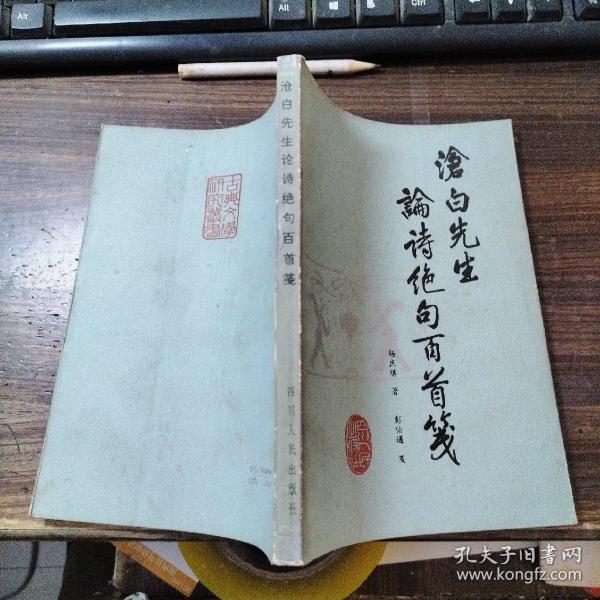 滄白先生
論诗绝句百首箋
杨庶堪 著
彭伯通 笺
沧白先生论诗绝句百首笺
四川人民出版社
古典文學
研究叢書
Alt
Alt
Ctrl
孔夫子旧书网
www.kongfz.com